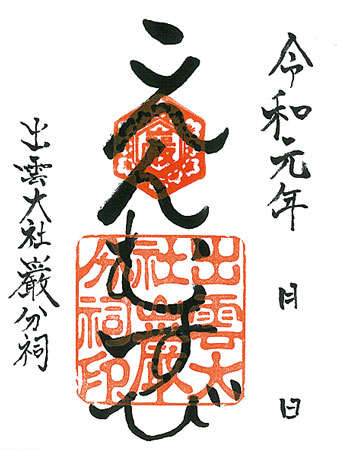 令和元年 月 日
ごえんむすび
出雲大社巌分祠
出雲大
社巌
分祠印